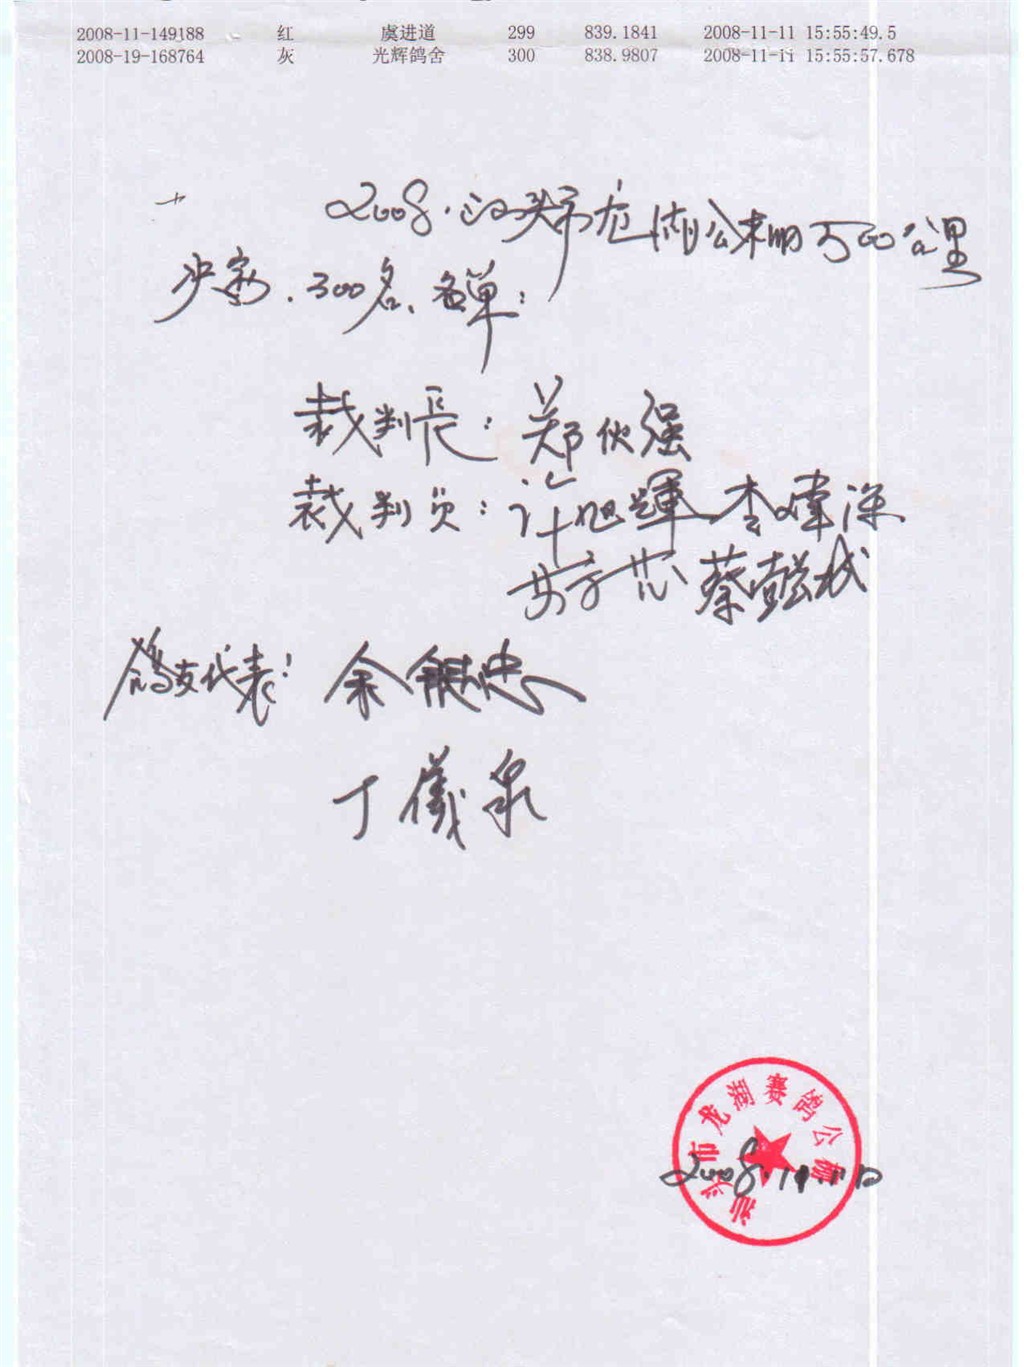 2008-11-149188 红 虞进道 299 839.1841 2008-11-11 15:55:49.5
2008-19-168764 灰 光辉鸽舍 300 838.9807 2008-11-11 15:55:57.678
2008.汕头市龙湖公棚500公里
决赛.300名、名单:
裁判長:郑伙强
裁判员:许旭輝 李暐深
蔡
鸽友代表:余键忠
丁儀泉
汕头市龙湖赛鸽公棚
2008.11.11日